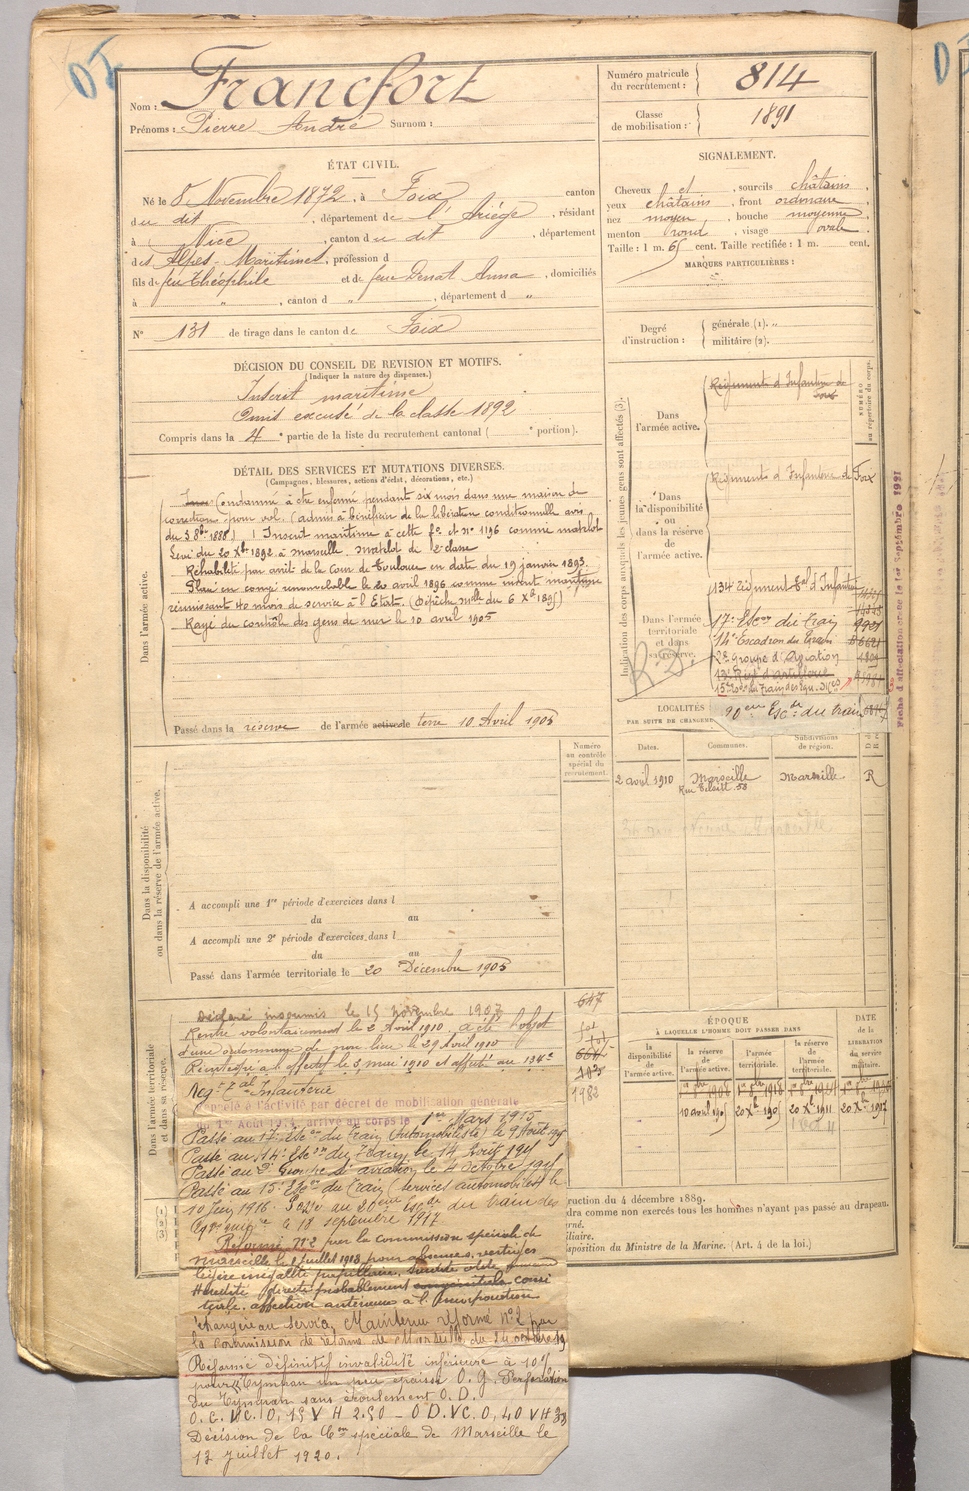 Nom : Francfort
Prénoms : Pierre André Surnom :
Numéro matricule du recrutement : 814
Classe de mobilisation : 1891
ÉTAT CIVIL.
Né le 8 Novembre 1872, à Foix canton
du dit, département de l'Ariège, résidant
à Nice, canton du dit, département
des Alpes-Maritimes, profession d
fils de feu Théophile et de feu Denat Anna, domiciliés
à " , canton d " , département d "
N° 131 de tirage dans le canton de Foix
SIGNALEMENT.
Cheveux et , sourcils châtains
yeux châtains, front ordinaire
nez moyen, bouche moyenne
menton rond, visage ovale
Taille : 1 m. 65 cent. Taille rectifiée : 1 m. cent.
MARQUES PARTICULIÈRES :
Degré d'instruction : générale (1). "
militaire (2).
DÉCISION DU CONSEIL DE REVISION ET MOTIFS.
(Indiquer la nature des dispenses.)
Inscrit maritime
Omis excusé de la classe 1892
Compris dans la 4e partie de la liste du recrutement cantonal ( e portion).
DÉTAIL DES SERVICES ET MUTATIONS DIVERSES.
(Campagnes, blessures, actions d'éclat, décorations, etc.)
Dans l'armée active.
Condamné à être enfermé pendant six mois dans une maison de
correction pour vol (admis à bénéficier de la libération conditionnelle
du 3 8bre 1888) Inscrit maritime à cette fo et no 1196 comme matelot
Levé du 20 Xbre 1892 à Marseille matelot de 2e classe
Réhabilité par arrêt de la Cour de Toulouse en date du 19 janvier 1893.
Placé en congé renouvelable le 20 avril 1896 comme inscrit maritime
réunissant 40 mois de service à l'État. (Dépêche mlle du 6 Xbre 1895)
Rayé du contrôle des gens de mer le 10 avril 1905
Passé dans la réserve de l'armée active de terre 10 Avril 1905
Indication des corps auxquels les jeunes gens sont affectés (3).
NUMÉRO au répertoire du corps.
Dans l'armée active.
Régiment d'Infanterie de Foix
Dans la disponibilité ou dans la réserve de l'armée active.
Régiment d'Infanterie de Foix
Dans l'armée territoriale et dans sa réserve.
134 Régiment Tal d'Infanterie
17e Escon du Train
14e Escadron du Train
2e Groupe d'Aviation
15e Escon du Train des Equ. Mres
20eme Escde du train
R.D.
Fiche d'affectation avec le 1er Septembre 1921
LOCALITÉS
PAR SUITE DE CHANGEME
Numéro au contrôle spécial du recrutement.
Dates. Communes. Subdivisions de région.
2 avril 1910 Marseille Marseille R
Dans la disponibilité ou dans la réserve de l'armée active.
A accompli une 1re période d'exercices dans l
du au
A accompli une 2e période d'exercices dans l
du au
Passé dans l'armée territoriale le 20 Décembre 1905
Dans l'armée territoriale et dans sa réserve.
Déclaré insoumis le 15 novembre 1907
Rentré volontairement le 2 Avril 1910. a été l'objet
d'une ordonnance de non lieu le 29 Avril 1910
Réintégré à l'effectif le 3 mai 1910 et affecté au 134e
Régt Tal Infanterie
Rappelé à l'activité par décret de mobilisation générale
du 1er Août 1914, arrivé au corps le 1er Mars 1915
Passé au 17e Escon du Train (Automobiliste) le 9 Août 1915
Passé au 14e Escon du Train le 14 Août 1915
Passé au 2e Groupe d'aviation le 4 octobre 1915
Passé au 15e Escon du Train (service automobiles) le
10 Juin 1916. Passé au 20eme Escde du train des
le 18 septembre 1917
Réformé N°2 par la commission spéciale de
Marseille le 8 juillet 1918 pour absences, vertiges
légère inégalité pupillaire, surdité
Hérédité directe probablement
affection antérieure à l'incorporation
étrangère au service. Maintenu réformé n°2 par
la commission de réforme de Marseille du 24 octobre 19
Réformé définitif invalidité inférieure à 10%
pour tympan un peu épaissi O.G. Perforation
du tympan sans écoulement O.D.
Décision de la Con spéciale de Marseille le
12 juillet 1920.
647
1982
ÉPOQUE
À LAQUELLE L'HOMME DOIT PASSER DANS
la disponibilité de l'armée active.
la réserve de l'armée active.
l'armée territoriale.
la réserve de l'armée territoriale.
DATE de la LIBÉRATION du service militaire.
10 avril 1905 20 Xbre 1905 20 Xbre 1911 20 Xbre 1917
ruction du 4 décembre 1889.
dra comme non exercés tous les hommes n'ayant pas passé au drapeau.
rné.
iliaire.
isposition du Ministre de la Marine. (Art. 4 de la loi.)